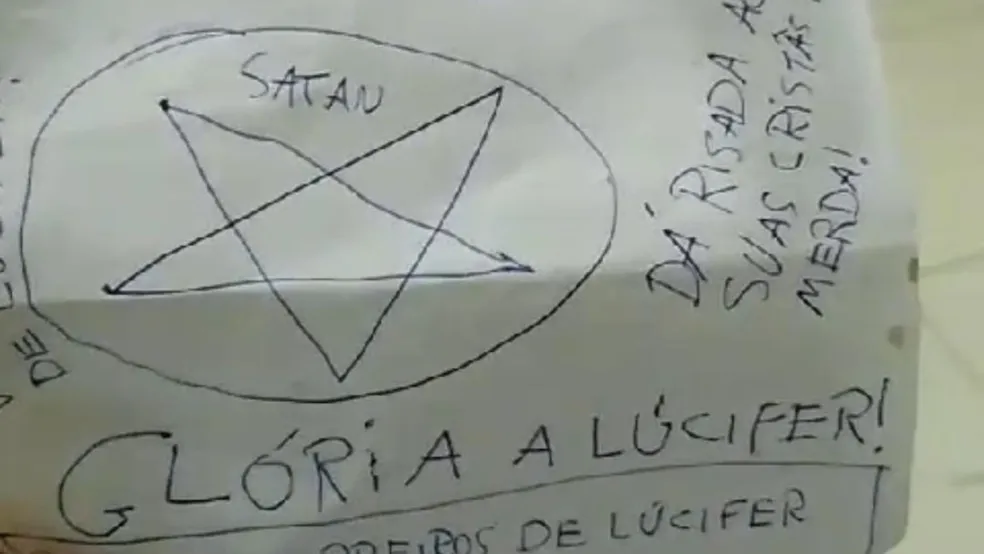 SATAN
DÁ RISADA
SUAS CRISTÃS
MERDA!
DE
GLÓRiA A LÚCIFER!
DE LÚCIFER